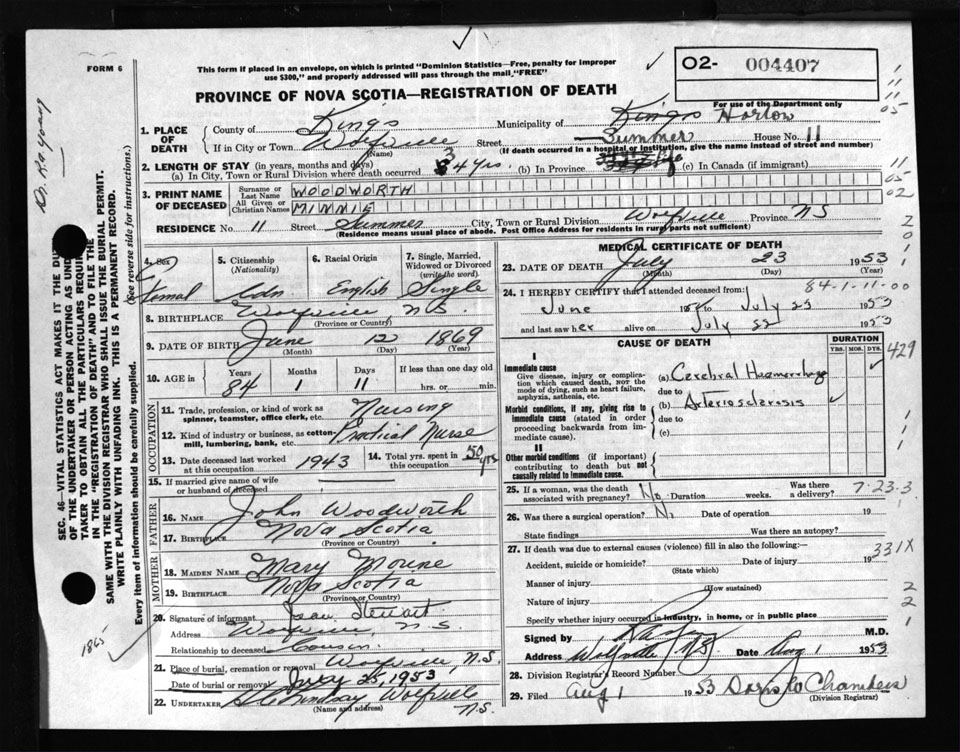 FORM 6
This form if placed in an envelope, on which is printed "Dominion Statistics—Free, penalty for improper
use $300," and properly addressed will pass through the mail "FREE"
O2- 004407
For use of the Department only
PROVINCE OF NOVA SCOTIA—REGISTRATION OF DEATH
1. PLACE OF DEATH { County of Kings Municipality of Kings Horton
If in City or Town Wolfville Street Summer House No. 11
(Name) (If death occurred in a hospital or institution, give the name instead of street and number)
2. LENGTH OF STAY (in years, months and days)
(a) In City, Town or Rural Division where death occurred 34 yrs (b) In Province life (c) In Canada (if immigrant)
3. PRINT NAME OF DECEASED { Surname or Last Name WOODWORTH
All Given or Christian Names MINNIE
RESIDENCE No. 11 Street Summer City, Town or Rural Division Wolfville Province NS
(Residence means usual place of abode. Post Office Address for residents in rural parts not sufficient)
4. Sex 5. Citizenship (Nationality) 6. Racial Origin 7. Single, Married, Widowed or Divorced (write the word)
Femal Cdn. English Single
8. BIRTHPLACE Wolfville, N.S.
(Province or Country)
9. DATE OF BIRTH June 12 1869
(Month) (Day) (Year)
10. AGE in Years Months Days If less than one day old
84 1 11 hrs. or min.
OCCUPATION
11. Trade, profession, or kind of work as spinner, teamster, office clerk, etc. Nursing
12. Kind of industry or business, as cotton-mill, lumbering, bank, etc. Practical Nurse
13. Date deceased last worked at this occupation 1943 14. Total yrs. spent in this occupation 50 yrs
15. If married give name of wife or husband of deceased
FATHER
16. NAME John Woodworth
17. BIRTHPLACE Nova Scotia
(Province or Country)
MOTHER
18. MAIDEN NAME Mary
19. BIRTHPLACE Nova Scotia
(Province or Country)
20. Signature of informant Stewart
Address Wolfville, N.S.
Relationship to deceased Cousin
21. Place of burial, cremation or removal Wolfville, N.S.
Date of burial or removal July 25, 1953
22. UNDERTAKER Lindsay Wolfville N.S.
(Name and address)
MEDICAL CERTIFICATE OF DEATH
23. DATE OF DEATH July 23 1953
(Month) (Day) (Year)
84-1-11-00
24. I HEREBY CERTIFY that I attended deceased from:
June 195 to July 23 1953
and last saw her alive on July 22 1953
CAUSE OF DEATH DURATION
YRS. MOS. DYS.
429
I
Immediate cause
Give disease, injury or complication which caused death, NOT the mode of dying, such as heart failure, asphyxia, asthenia, etc.
(a) Cerebral Haemorrhage
due to
Morbid conditions, if any, giving rise to immediate cause (stated in order proceeding backwards from immediate cause).
(b) Arteriosclerosis
due to
(c)
II
Other morbid conditions (if important) contributing to death but not causally related to immediate cause.
25. If a woman, was the death associated with pregnancy? No Duration weeks. Was there a delivery? 7-23-3
26. Was there a surgical operation? No Date of operation 19
State findings Was there an autopsy?
27. If death was due to external causes (violence) fill in also the following:—
331X
Accident, suicide or homicide? Date of injury 19
(State which)
Manner of injury
(How sustained)
Nature of injury
Specify whether injury occurred in industry, in home, or in public place
Signed by M.D.
Address Wolfville NS Date Aug 1 1953
28. Division Registrar's Record Number
29. Filed Aug 1 1953 Chambers
(Division Registrar)
SEC. 46—VITAL STATISTICS ACT MAKES IT THE DU
OF THE UNDERTAKER OR PERSON ACTING AS UND
TAKER TO OBTAIN ALL THE PARTICULARS REQUIR
IN THE "REGISTRATION OF DEATH" AND TO FILE THE
SAME WITH THE DIVISION REGISTRAR WHO SHALL ISSUE THE BURIAL PERMIT.
WRITE PLAINLY WITH UNFADING INK. THIS IS A PERMANENT RECORD.
Every item of information should be carefully supplied. (See reverse side for instructions.)
1865